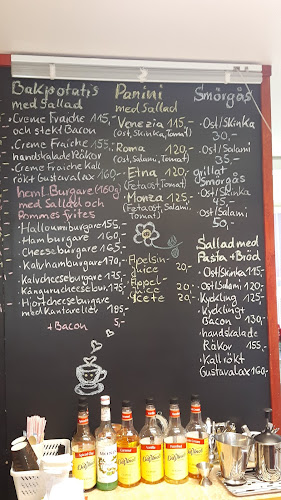 Bakpotatis
med Sallad
Creme Fraiche 115,-
och stekt Bacon
Creme Fraiche 155,-
handskalade Räkor
Creme Fraiche Kall
rökt Gustavalax 160,-
heml. Burgare (160g)
med Sallad och
Pommes frites
Halloumiburgare 155,-
Hamburgare 160,-
Cheeseburgare 165,-
Kalvhamburgare 170,-
Kalvcheeseburgare 175,-
Kängurucheesebur. 175,-
Hjortcheeseburgare
med Kantareller 185,-
+ Bacon 5,-
Panini
med Sallad
Venezia 115,-
(Ost, Skinka, Tomat)
Roma 120,-
(Ost, Salami, Tomat)
Etna 120,-
(Fetaost, Tomat)
Monza 125,-
(Fetaost, Salami,
Tomat)
Apelsin-
juice 20,-
Äppel-
juice 20,-
Icete 20,-
Smörgås
Ost/Skinka
30,-
Ost/Salami
35,-
grillat
Smörgås
Ost/Skinka
45,-
Ost/Salami
50,-
Sallad med
Pasta + Bröd
Ost/Skinka 115,-
Ost/Salami 120,-
Kyckling 125,-
Kyckling+
Bacon 130,-
handskalade
Räkor 155,-
Kallrökt
Gustavalax 160,-
MONIN
DaVinci
DaVinci
DaVinci
DaVinci